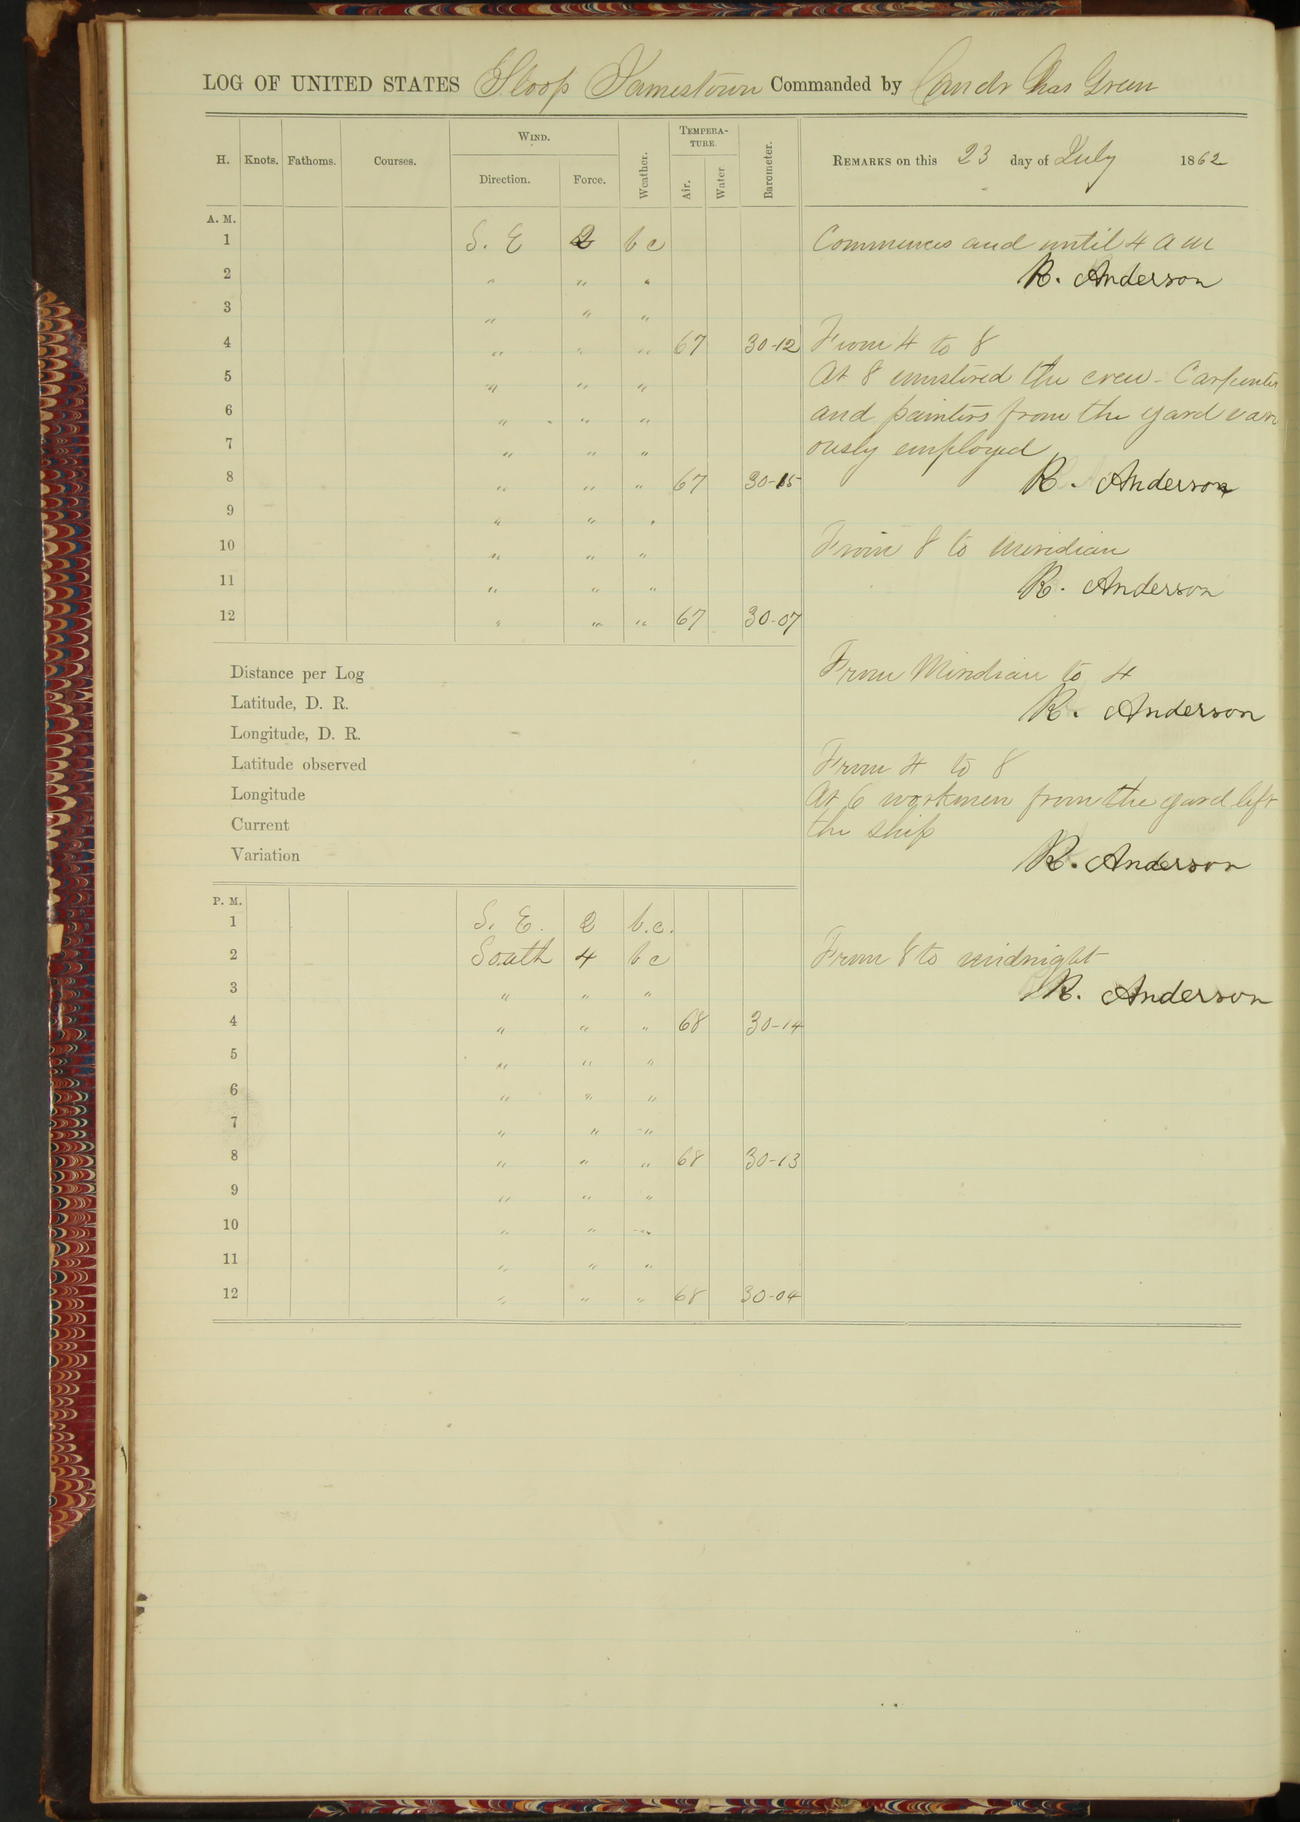 LOG OF UNITED STATES Sloop Jamestown Commanded by Comdr Chas Green
H. Knots. Fathoms. Courses. WIND. Direction. Force. Weather. TEMPERATURE. Air. Water Barometer. REMARKS on this 23 day of July 1862
A. M.
1 S. E 2 b c
2 " " "
3 " " "
4 " " " 67 30-12
5 " " "
6 " " "
7 " " "
8 " " " 67 30-15
9 " " "
10 " " "
11 " " "
12 " " " 67 30-07
Commences and until 4 a m
R. Anderson
From 4 to 8
At 8 mustered the crew - Carpenters
and painters from the yard vari
ously employed
R. Anderson
From 8 to meridian
R. Anderson
Distance per Log
Latitude, D. R.
Longitude, D. R.
Latitude observed
Longitude
Current
Variation
From Meridian to 4
R. Anderson
From 4 to 8
At 6 workmen from the yard left
the ship
R. Anderson
P. M.
1 S. E. 2 b.c.
2 South 4 b c
3 " " "
4 " " " 68 30-14
5 " " "
6 " " "
7 " " "
8 " " " 68 30-13
9 " " "
10 " " "
11 " " "
12 " " " 68 30-04
From 8 to midnight
R. Anderson